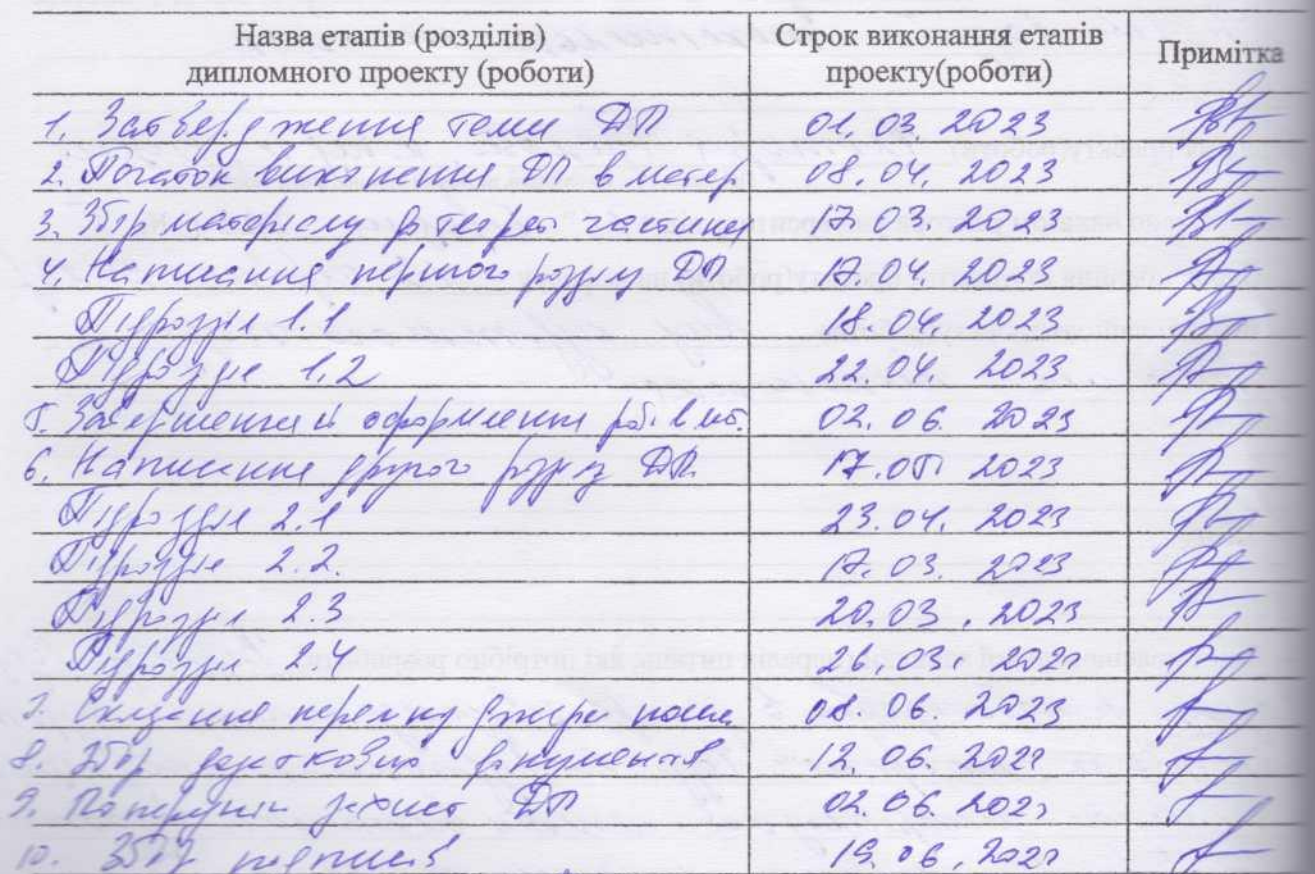 Назва етапів (розділів)
дипломного проекту (роботи)
Строк виконання етапів
проекту(роботи)
Примітка
1. Затвердження теми ДП 01.03 2023
2. Початок виконання ДП в матер 08.04. 2023
3. Збір матеріалу теорет частини 17 03 2023
4. Написання першого розділу ДП 17.04. 2023
Підрозділ 1.1 18.04. 2023
Підрозділ 1.2 22.04. 2023
5. Завершення й оформлення 02.06. 2023
6. Написання другого розділу ДП. 2023
Підрозділ 2.1 23.04. 2023
Підрозділ 2.2. 17.03. 2023
Підрозділ 2.3 20.03. 2023
Підрозділ 2.4 26.03
7. Складання переліку джерел 08.06. 2023
8. Збір додаткових документів 12.06.
9. Попередній захист ДП 02.06.
10. Збір підписів 06.